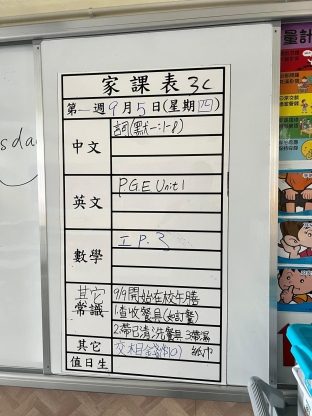 家課表 3C
第一週9月5日(星期四)
中文
詞(默一:1-8)
英文
P.G.E Unit 1
數學
工 P.3
其它
常識
9/9開始在校午膳
1.查收餐具(如訂餐)
2.帶已清洗餐具 3.帶濕
紙巾
其它
值日生
量計
sda